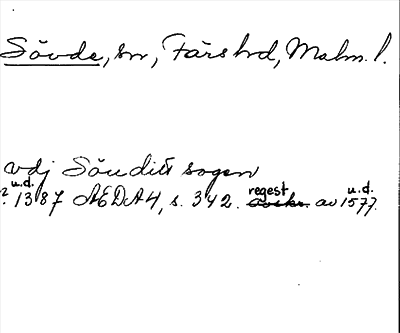 Sövde, sn, Färs hd, Malm. l.
vdj Söuditt sogen
? u.d. 1387 ÆDA 4, s. 342. regest avskr. av u.d. 1577.